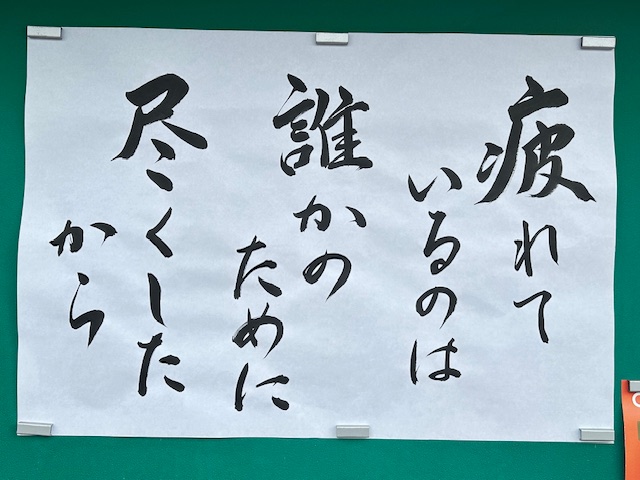 疲れて
いるのは
誰かの
ために
尽くした
から